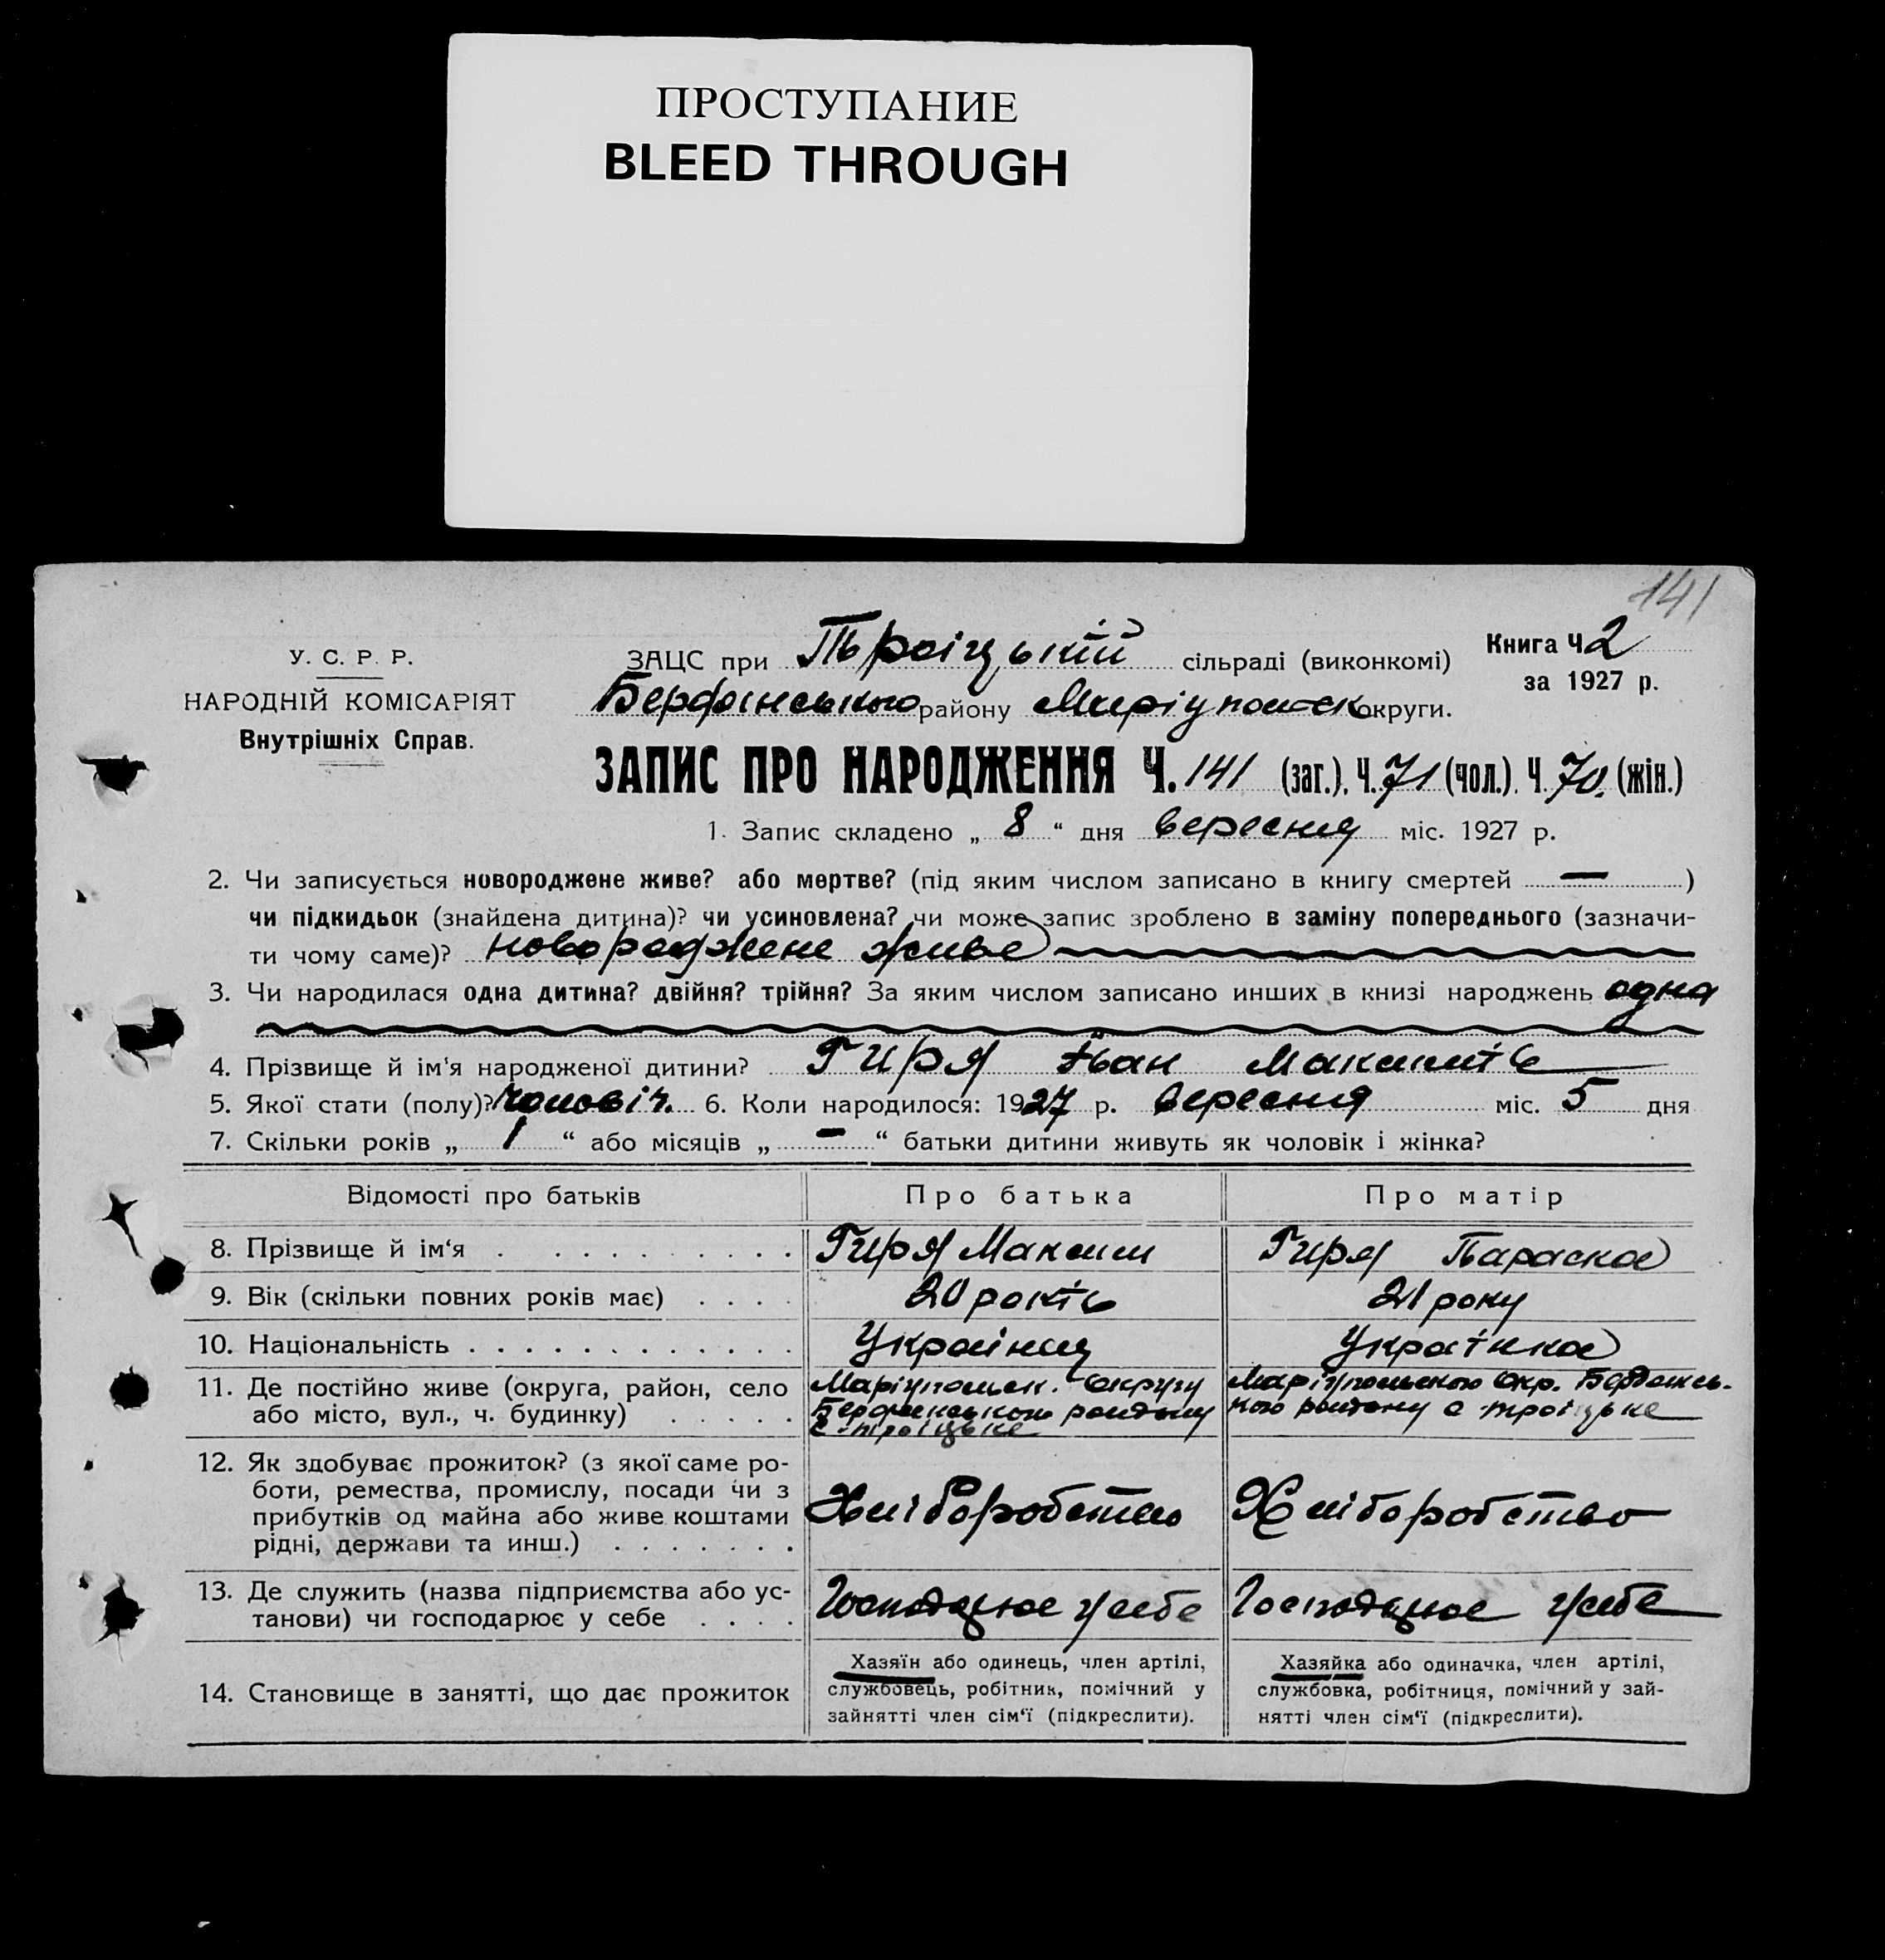 ПРОСТУПАНИЕ
BLEED THROUGH
141
У. С. Р. Р.
НАРОДНІЙ КОМІСАРІЯТ
Внутрішніх Справ.
ЗАЦС при Троіцькій сільраді (виконкомі)
Бердянського району Маріупольск округи.
Книга Ч 2
за 1927 р.
ЗАПИС ПРО НАРОДЖЕННЯ Ч. 141 (заг.), Ч. 71 (чол.). Ч. 70. (жін.)
1. Запис складено „ 8 “ дня вересня міс. 1927 р.
2. Чи записується новороджене живе? або мертве? (під яким числом записано в книгу смертей — )
чи підкидьок (знайдена дитина)? чи усиновлена? чи може запис зроблено в заміну попереднього (зазначи-
ти чому саме)? новороджене живе
3. Чи народилася одна дитина? двійня? трійня? За яким числом записано инших в книзі народжень одна
4. Прізвище й ім'я народженої дитини? Гиря Іван Максимів
5. Якої стати (полу)? чоловіч. 6. Коли народилося: 1927 р. вересня міс. 5 дня
7. Скільки років „ 1 “ або місяців „ — “ батьки дитини живуть як чоловік і жінка?
Відомості про батьків Про батька Про матір
8. Прізвище й ім'я . . . . . . . . . . Гиря Максим Гиря Параска
9. Вік (скільки повних років має) . . . . 20 років 21 року
10. Національність . . . . . . . . . . . . Украінец Украінка
11. Де постійно живе (округа, район, село
або місто, вул., ч. будинку) . . . . .
Маріупольск. Округу
Бердянського району
с Троіцьке
Маріупольского Окр. Бердянсь-
кого району с Троіцьке
12. Як здобуває прожиток? (з якої саме ро-
боти, ремества, промислу, посади чи з
прибутків од майна або живе коштами
рідні, держави та инш.) . . . . . . .
Хліборобство
Хліборобство
13. Де служить (назва підприємства або ус-
танови) чи господарює у себе . . . .
Господарює у себе
Господарює у себе
14. Становище в занятті, що дає прожиток
Хазяїн або одинець, член артілі,
службовець, робітник, помічний у
зайнятті член сім'ї (підкреслити).
Хазяйка або одиначка, член артілі,
службовка, робітниця, помічний у зай-
нятті член сім'ї (підкреслити).